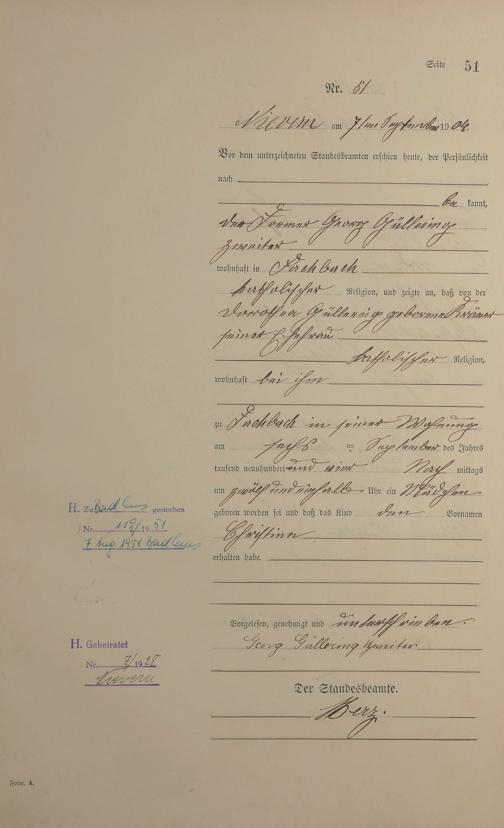 Seite 51
Nr. 51
Nievern am 7ten September 1904
Vor dem unterzeichneten Standesbeamten erschien heute, der Persönlichkeit
nach
be kannt,
der Former Georg Güllering
zweiter
wohnhaft in Fachbach
katholischer Religion, und zeigte an, daß von der
Dorothea Güllering geborene Krämer
seiner Ehefrau
katholischer Religion,
wohnhaft bei ihm
zu Fachbach in seiner Wohnung
am sechs ten September des Jahres
tausend neunhundert und vier Nach mittags
um zwölf und einhalb Uhr ein Mädchen
geboren worden sei und daß das Kind den Vornamen
Christina
erhalten habe.
Vorgelesen, genehmigt und unterschrieben.
Georg Güllering zweiter
Der Standesbeamte.
Merz.
H. Zu Bad Ems gestorben
Nr. 119/1951
7 Aug. 1951 Bad Ems
H. Geheiratet
Nr. 7/1928
Nievern
Form. A.